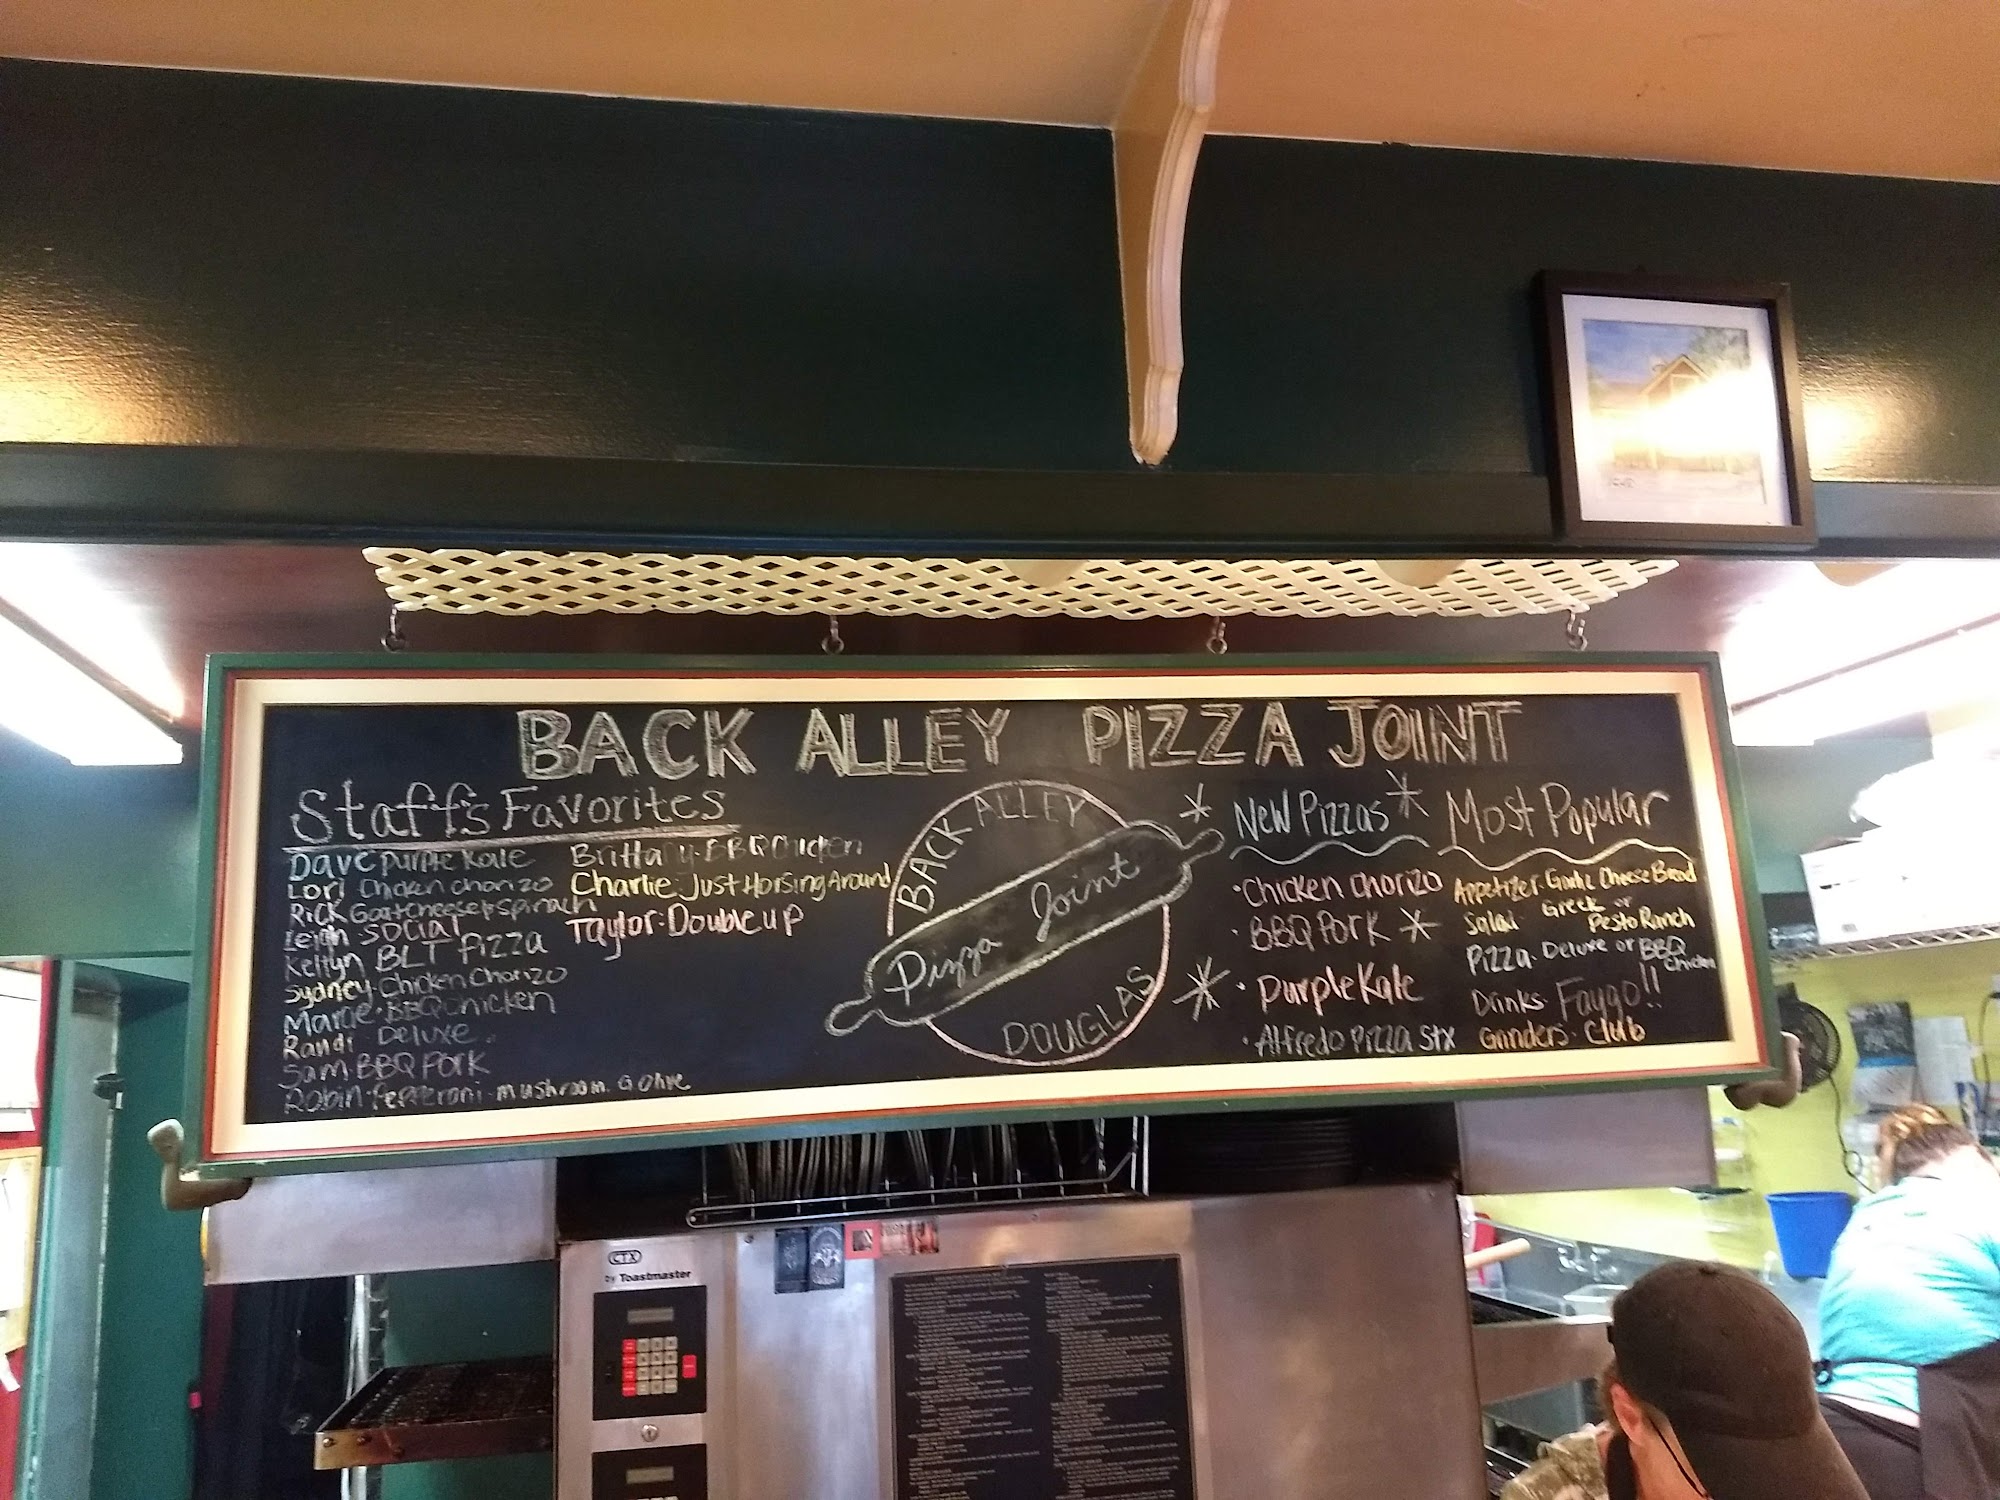 BACK ALLEY PIZZA JOINT
Staff's Favorites
Dave purple Kale
Lori Chicken chorizo
Rick Goat cheese & spinach
Leigh Social
Keltyn BLT Pizza
Sydney. Chicken Chorizo
Marcie. BBQ Chicken
Randi Deluxe.
Sam. BBQ Pork
Robin. Pepperoni. mushroom. G. Olive
Brittany. BBQ Chicken
Charlie: Just Horsing Around
Taylor. Double up
BACK ALLEY
Pizza Joint
DOUGLAS
* New Pizzas *
• Chicken chorizo
• BBQ Pork *
* • Purple Kale
• Alfredo Pizza Stx
Most Popular
Appetizer. Garlic Cheese Bread
Salad. Greek or
Pesto Ranch
Pizza. Deluxe or BBQ
Chicken
Drinks. Faygo!!
Grinders. Club
CTX
by Toastmaster